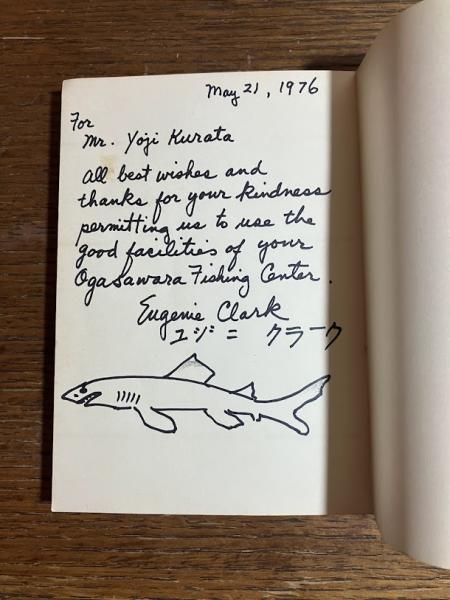 May 21, 1976
For
Mr. Yoji Kurata
All best wishes and
thanks for your kindness
permitting us to use the
good facilities of your
Ogasawara Fishing Center.
Eugenie Clark
ユジニ クラーク